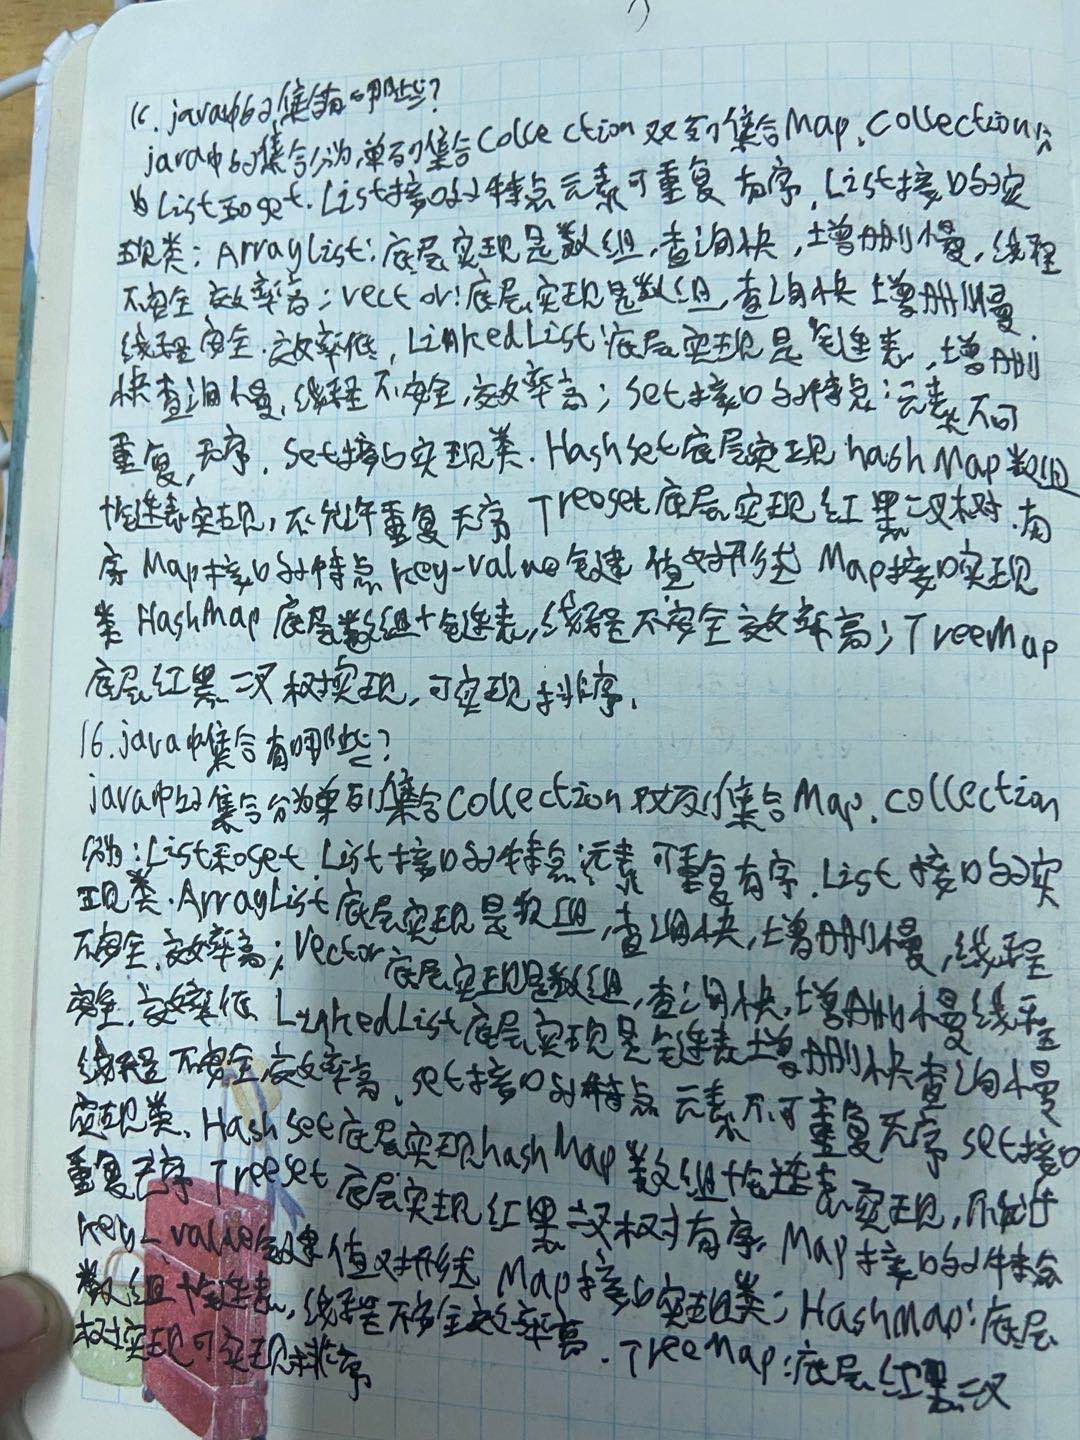 16.java中的集合有哪些?
java中的集合分为,单列集合Collection双列集合Map.Collection分
为List和set.List接口的特点元素可重复有序,List接口的实
现类:ArrayList:底层实现是数组,查询快,增删慢,线程
不安全效率高;vector:底层实现是数组,查询快增删慢,
线程安全.效率低,LinkedList:底层实现是链表,增删
快查询慢,线程不安全,效率高;set接口的特点:元素不可
重复,无序,set接口实现类.Hashset底层实现hashMap数组
+链表实现,不允许重复无序Treeset底层实现红黑二叉树.有
序Map接口的特点key-value键值对形式Map接口实现
类HashMap底层数组+链表,线程不安全效率高;TreeMap
底层红黑二叉树实现,可实现排序,
16.java中集合有哪些?
java中的集合分为单列集合Collection双列集合Map.collection
分为:List和set.List接口的特点:元素可重复有序.List接口的实
现类.ArrayList底层实现是数组,查询快,增删慢,线程
不安全,效率高;Vector底层实现是数组,查询快,增删慢线程
安全,效率低LinkedList底层实现是链表增删快查询慢
线程不安全,效率高,set接口的特点元素不可重复无序set接口
实现类,Hashset底层实现hashMap数组+链表实现,不允许
重复无序Treeset底层实现红黑二叉树有序,Map接口的特点
key-value键值对形式Map接口实现类;HashMap:底层
数组+链表,线程不安全效率高.TreeMap:底层红黑二叉
树实现可实现排序